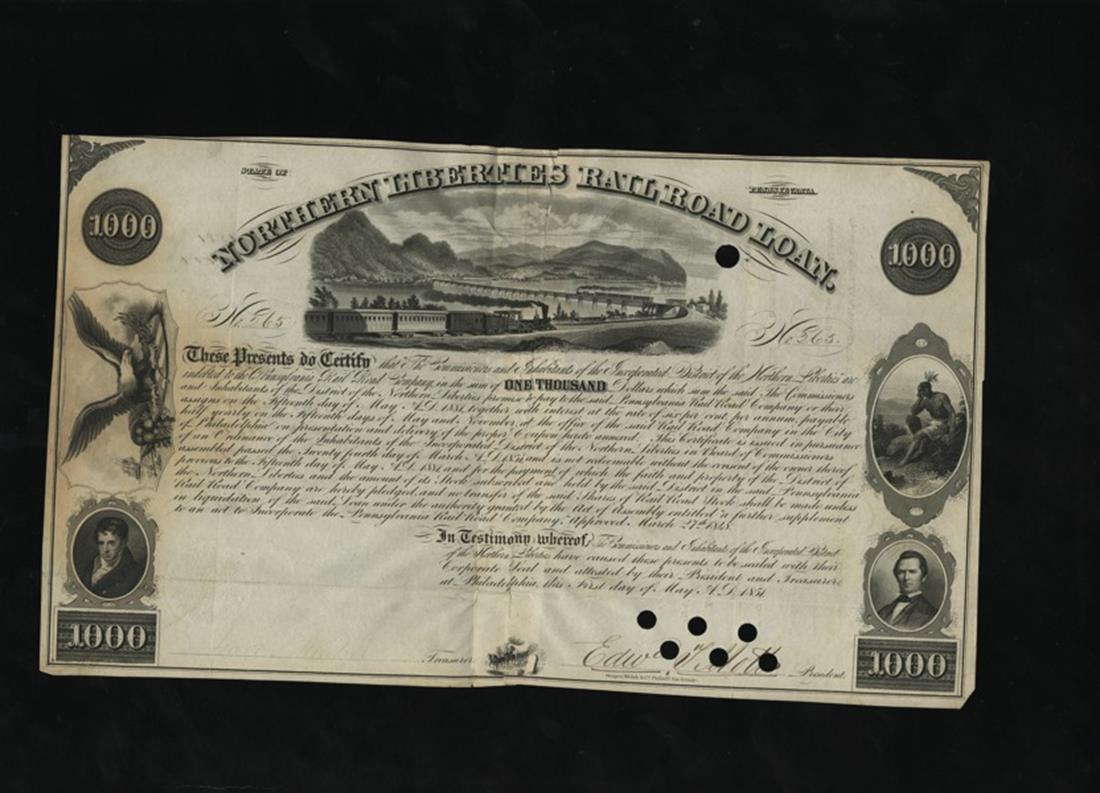 STATE OF
PENNSYLVANIA.
NORTHERN LIBERTIES RAIL ROAD LOAN.
1000
1000
No. 565
No. 565
These Presents do Certify that The Commissioners and Inhabitants of the Incorporated District of the Northern Liberties are
indebted to the Pennsylvania Rail Road Company, in the sum of ONE THOUSAND Dollars which sum the said The Commissioners
and Inhabitants of the District of the Northern Liberties promise to pay to the said Pennsylvania Rail Road Company or their
assigns on the Fifteenth day of May A.D. 1881, together with interest at the rate of six per cent per annum, payable
half yearly on the Fifteenth days of May and November, at the office of the said Rail Road Company in the City
of Philadelphia on presentation and delivery of the proper Coupon hereto annexed. This Certificate is issued in pursuance
of an Ordinance of the Inhabitants of the Incorporated District of the Northern Liberties in Board of Commissioners
assembled passed the Twenty fourth day of March A.D. 1851, and is not redeemable without the consent of the owner thereof
previous to the Fifteenth day of May A.D. 1881, and for the payment of which the faith and property of the District of
the Northern Liberties and the amount of its Stock subscribed and held by the said District in the said Pennsylvania
Rail Road Company are hereby pledged, and no transfer of the said Shares of Rail Road Stock shall be made unless
in liquidation of the said Loan under the authority granted by the Act of Assembly entitled "a further supplement
to an act to Incorporate the Pennsylvania Rail Road Company," Approved March 27th 1848.
In Testimony whereof, The Commissioners and Inhabitants of the Incorporated District
of the Northern Liberties have caused these presents to be sealed with their
Corporate Seal and attested by their President and Treasurer
at Philadelphia, this First day of May A.D. 1851.
1000
1000
Treasurer
Edw
President.